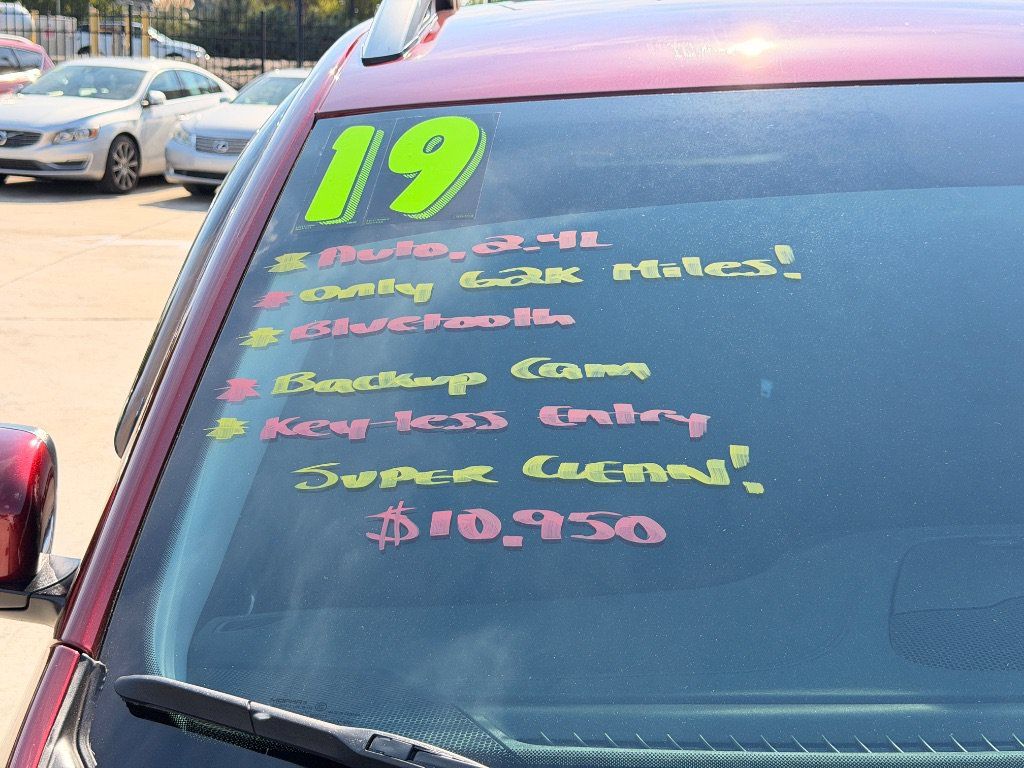 19
* Auto, 2.4L
* Only 62K Miles!
* Bluetooth
* Backup Cam
* Key-less Entry
Super Clean!
$10,950